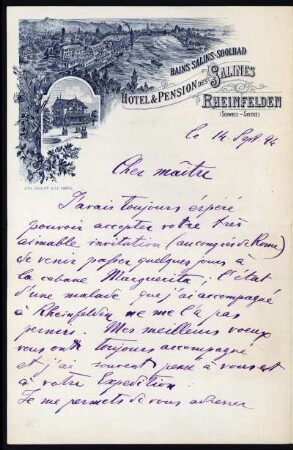 BAINS SALINS-SOOLBAD
HOTEL & PENSION DES SALINES
RHEINFELDEN
(SCHWEIZ - SUISSE)
le 14 Sept. 94
Cher maître
J'avais toujours espéré
pouvoir accepter votre très
aimable invitation (au congrès de Rome)
de venir passer quelques jours à
la cabane Margherita; l'état
d'une malade que j'ai accompagné
à Rheinfelden ne me l'a pas
permis. Mes meilleurs voeux
vous ont toujours accompagné
et j'ai souvent pensé à vous et
à votre Expedition.
Je me permets de vous adresser